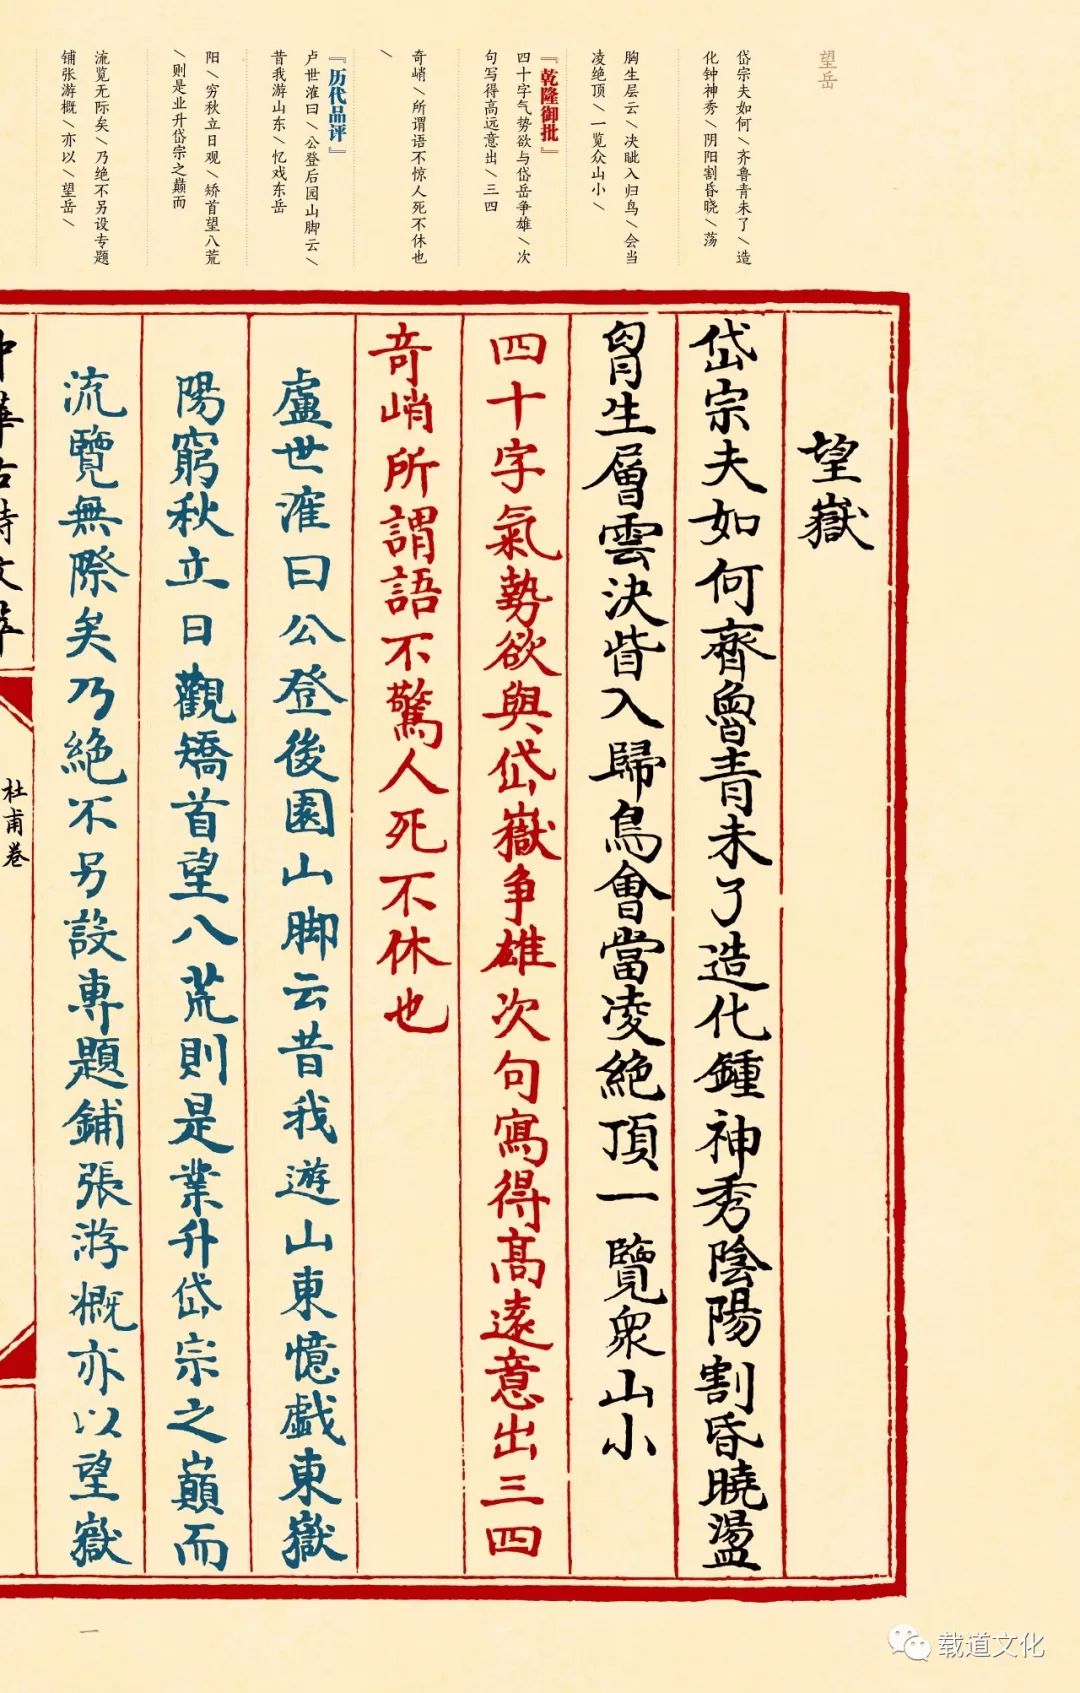 望岳
岱宗夫如何╲齐鲁青未了╲造
化钟神秀╲阴阳割昏晓╲荡
胸生层云╲决眦入归鸟╲会当
凌绝顶╲一览众山小╲
『乾隆御批』
四十字气势欲与岱岳争雄╲次
句写得高远意出╲三四
奇峭╲所谓语不惊人死不休也
╲
『历代品评』
卢世㴶曰╲公登后园山脚云╲
昔我游山东╲忆戏东岳
阳╲穷秋立日观╲矫首望八荒
╲则是业升岱宗之巅而
流览无际矣╲乃绝不另设专题
铺张游概╲亦以╲望岳╲
望嶽
岱宗夫如何齊魯青未了造化鍾神秀陰陽割昏曉盪
胷生層雲決眥入歸鳥會當凌絶頂一覽衆山小
四十字氣勢欲與岱嶽争雄次句寫得高遠意出三四
奇峭所謂語不驚人死不休也
盧世㴶曰公登後園山脚云昔我遊山東憶戯東嶽
陽窮秋立日觀矯首望八荒則是業升岱宗之巔而
流覽無際矣乃絶不另設專題鋪張游概亦以望嶽
中華古詩文萃
杜甫卷
一
载道文化